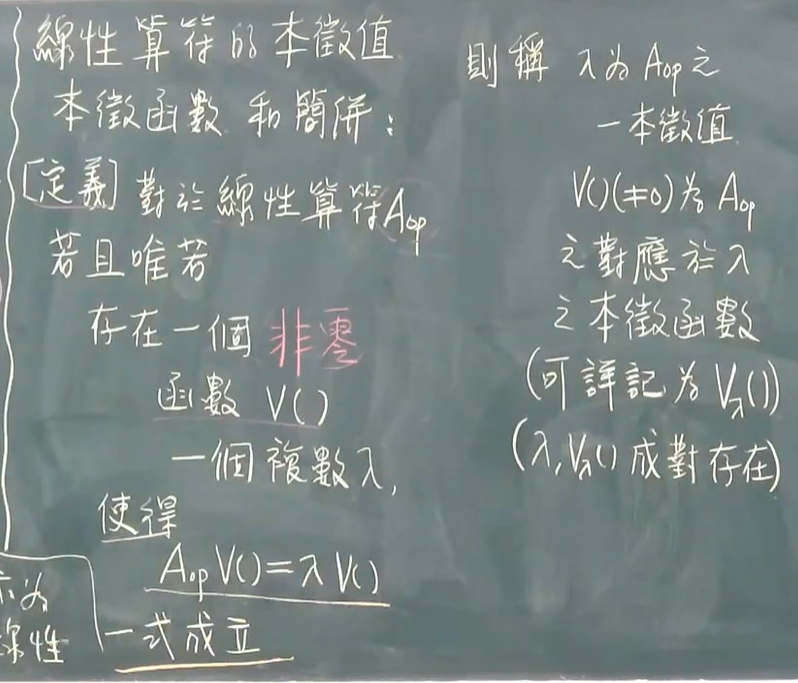 線性算符的本徵值
本徵函數和簡併:
[定義] 對於線性算符Aop
若且唯若
存在一個非零
函數 V()
一個複數λ,
使得
Aop V()=λ V()
一式成立
示为
線性
則稱 λ为Aop之
一本徵值
V()(≠0)为Aop
之對應於λ
之本徵函數
(可詳記为Vλ())
(λ,Vλ()成對存在)